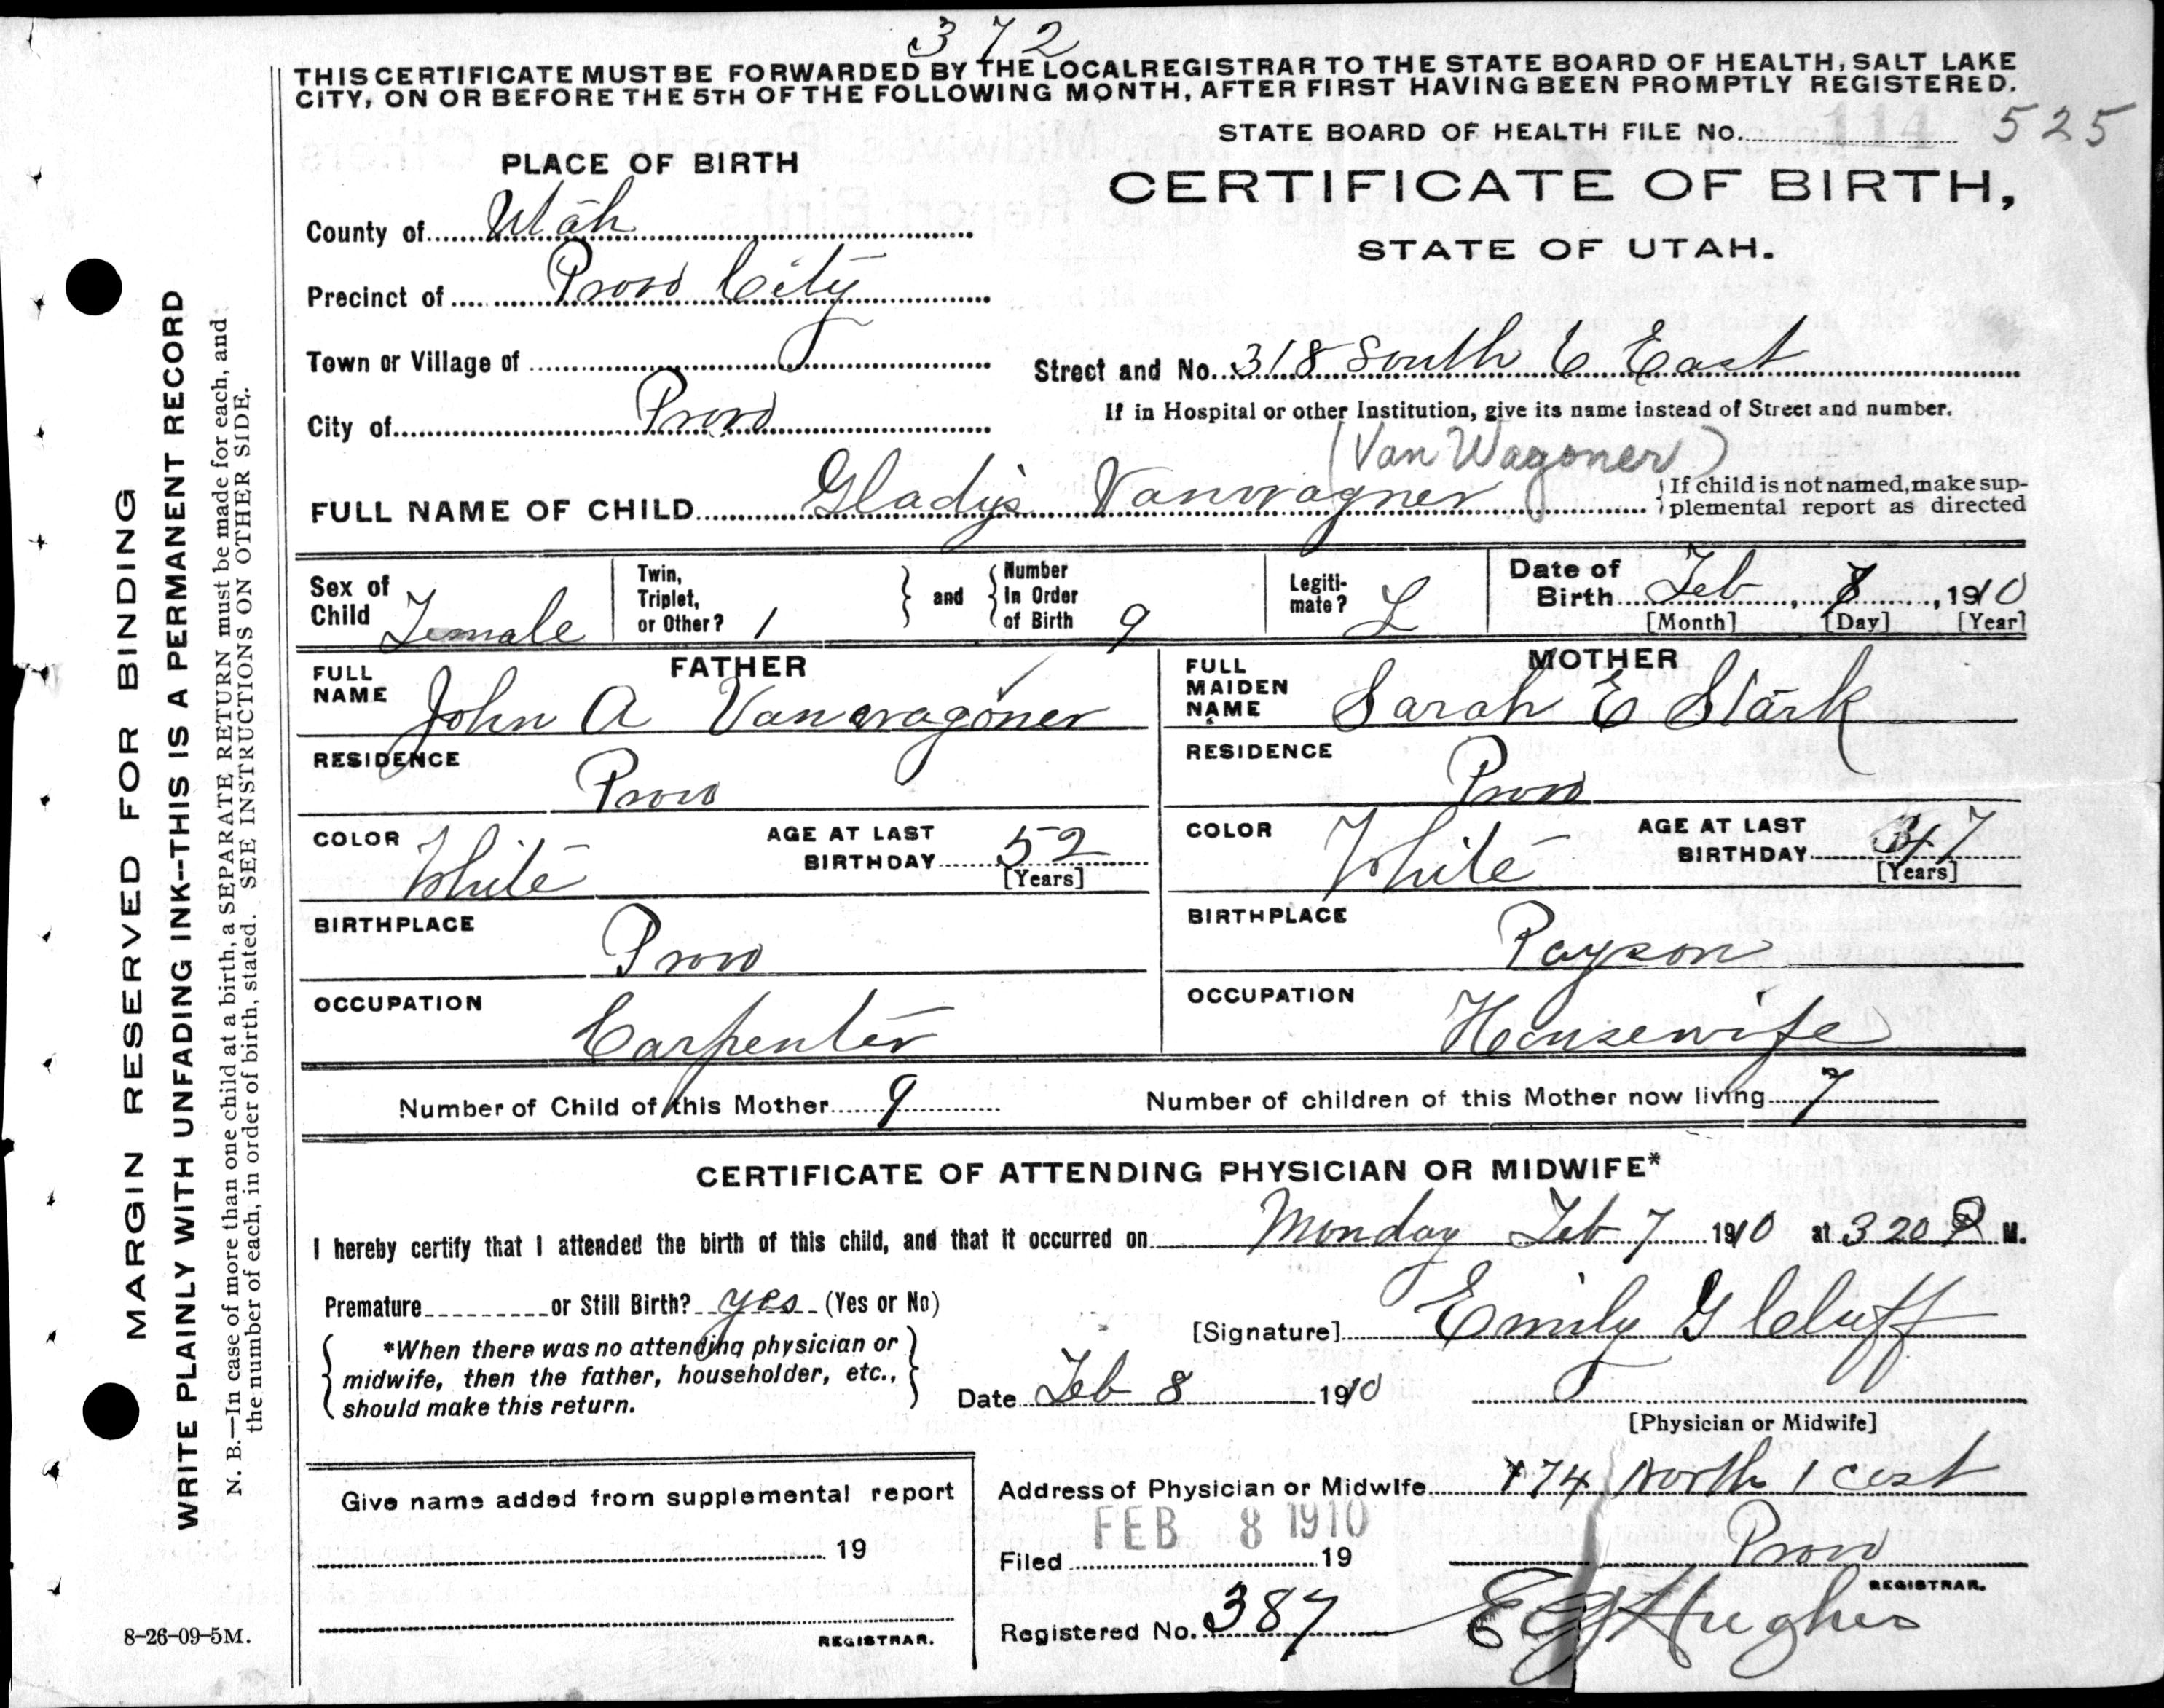 372
THIS CERTIFICATE MUST BE FORWARDED BY THE LOCAL REGISTRAR TO THE STATE BOARD OF HEALTH, SALT LAKE
CITY, ON OR BEFORE THE 5TH OF THE FOLLOWING MONTH, AFTER FIRST HAVING BEEN PROMPTLY REGISTERED.
STATE BOARD OF HEALTH FILE No. 114 525
PLACE OF BIRTH
CERTIFICATE OF BIRTH,
STATE OF UTAH.
County of Utah
Precinct of Provo City
Town or Village of
Street and No. 318 South 6 East
City of Provo
If in Hospital or other Institution, give its name instead of Street and number.
(Van Wagoner)
FULL NAME OF CHILD Gladys Vanwagner
If child is not named, make sup-
plemental report as directed
Sex of Child Female
Twin, Triplet, or Other? 1
and Number In Order of Birth 9
Legiti-mate? L
Date of Birth Feb 7, 1910
[Month] [Day] [Year]
FATHER
FULL NAME John A Vanwagoner
RESIDENCE Provo
COLOR White
AGE AT LAST BIRTHDAY 52
[Years]
BIRTHPLACE Provo
OCCUPATION Carpenter
MOTHER
FULL MAIDEN NAME Sarah E Stark
RESIDENCE Provo
COLOR White
AGE AT LAST BIRTHDAY 47
[Years]
BIRTHPLACE Payson
OCCUPATION Housewife
Number of Child of this Mother 9
Number of children of this Mother now living 7
CERTIFICATE OF ATTENDING PHYSICIAN OR MIDWIFE*
I hereby certify that I attended the birth of this child, and that it occurred on Monday Feb 7 1910 at 3 20 P M.
Premature or Still Birth? yes (Yes or No)
*When there was no attending physician or
midwife, then the father, householder, etc.,
should make this return.
[Signature] Emily G Cluff
Date Feb 8 1910
[Physician or Midwife]
Give name added from supplemental report
19
REGISTRAR.
Address of Physician or Midwife 174 North 1 east
Provo
FEB 8 1910
Filed 19
REGISTRAR.
Registered No. 387
E G Hughes
8-26-09-5M.
MARGIN RESERVED FOR BINDING
WRITE PLAINLY WITH UNFADING INK--THIS IS A PERMANENT RECORD
N. B.—In case of more than one child at a birth, a SEPARATE RETURN must be made for each, and
the number of each, in order of birth, stated. SEE INSTRUCTIONS ON OTHER SIDE.